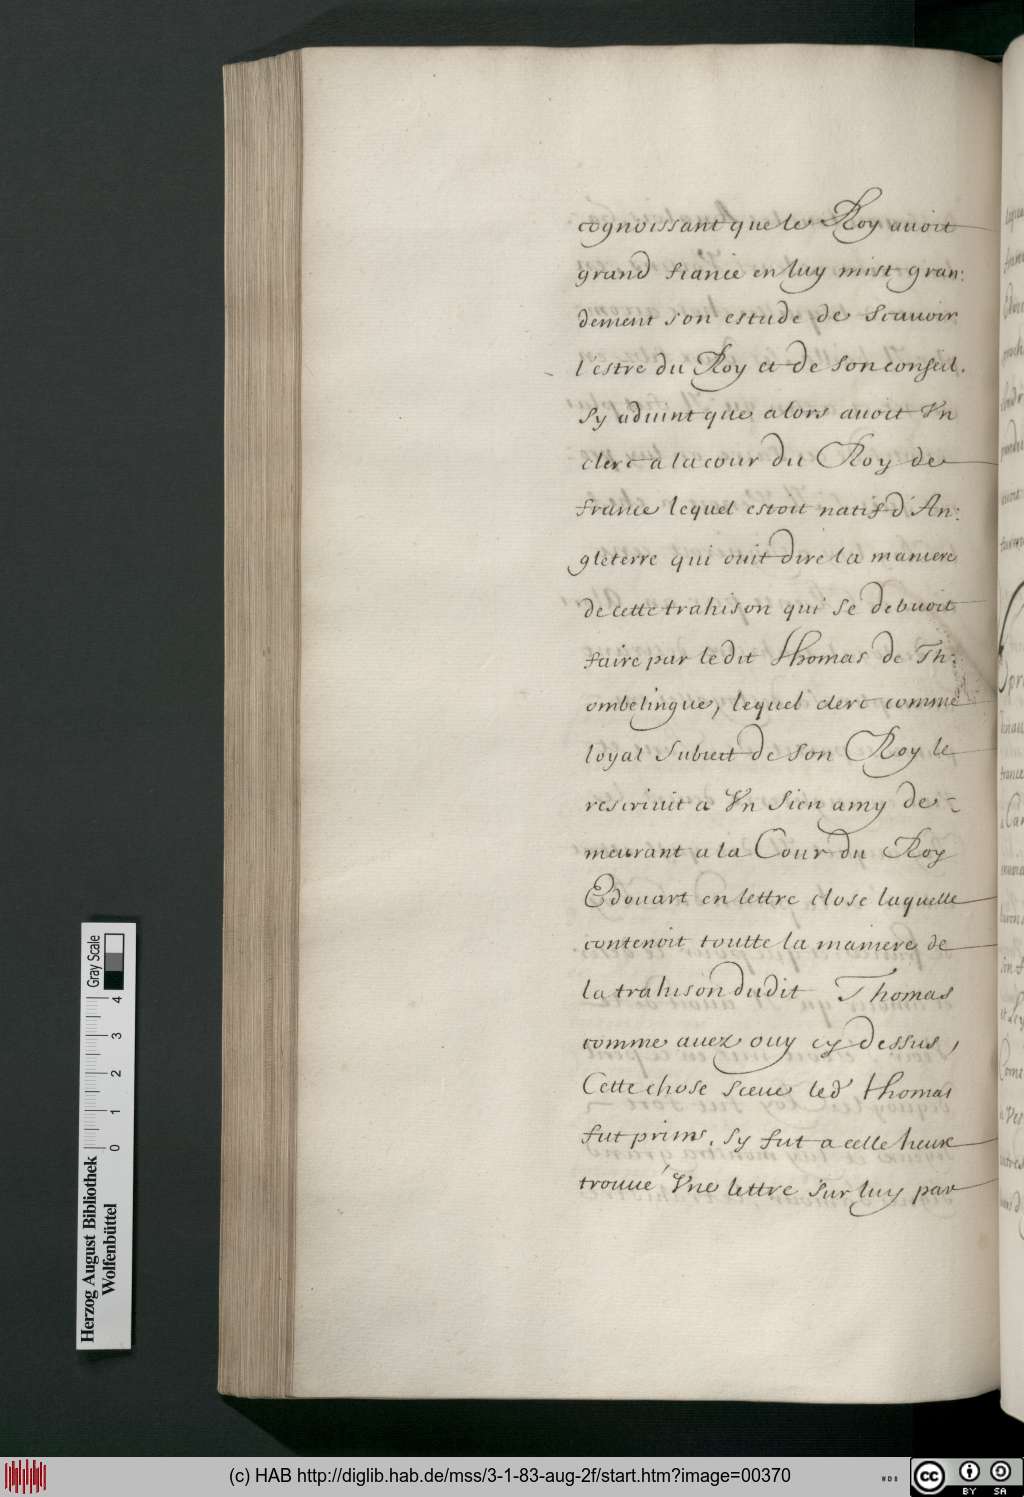 cognoissant que le Roy auoit
grand fiance en luy mist gran:
dement son estude de scauoir
l'estre du Roy et de son conseil.
Sy aduint que alors auoit Vn
clerc a la cour du Roy de
france lequel estoit natif d'An:
gleterre qui ouit dire la maniere
de cette trahison qui se debuoit
faire par ledit Thomas de Th:
ombelingue, lequel clerc comme
loyal subiect de son Roy le
rescriuit a Vn sien amy de-
meurant a la Cour du Roy
Edouart en lettre close laquelle
contenoit toutte la maniere de
la trahison dudit Thomas
comme auez ouy cy dessus,
Cette chose sceue led' Thomas
fut prins, sy fut a celle heure
trouué Vne lettre sur luy par
Herzog August Bibliothek
Wolfenbüttel
Gray Scale
0 1 2 3 4
(c) HAB http://diglib.hab.de/mss/3-1-83-aug-2f/start.htm?image=00370
cc BY SA